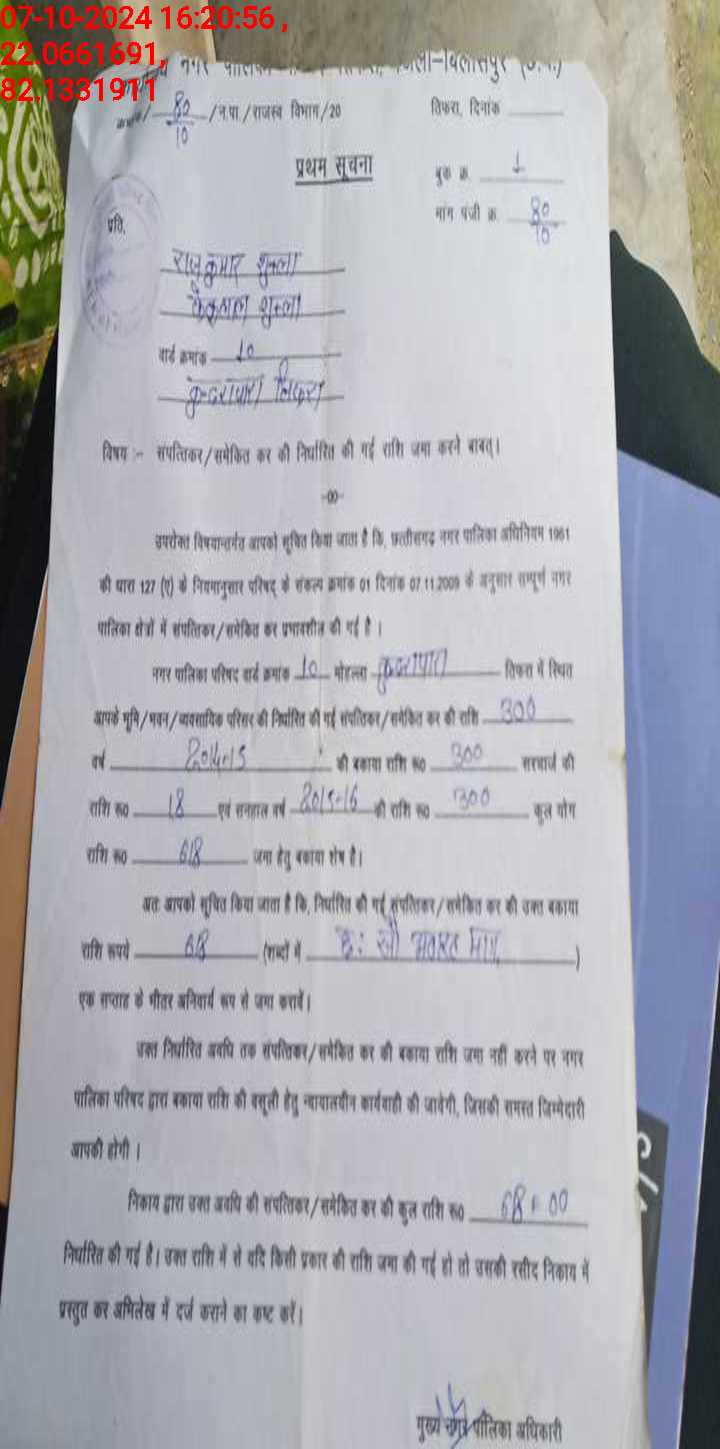 07-10-2024 16:20:56 ,
22.0661691,
82.1331911
नगर पालिका जिला-बिलासपुर (छ.ग.)
क्रमांक/ 80/10 /न.पा./राजस्व विभाग/20 तिफरा, दिनांक
प्रथम सूचना
बुक क्र. 1
मांग पंजी क्र. 80/10
प्रति,
राजकुमार शुक्ला
शुक्ला
वार्ड क्रमांक 10
तिफरा
विषय :- संपत्तिकर/समेकित कर की निर्धारित की गई राशि जमा करने बाबत्।
-00-
उपरोक्त विषयान्तर्गत आपको सूचित किया जाता है कि, छत्तीसगढ़ नगर पालिका अधिनियम 1961
की धारा 127 (ए) के नियमानुसार परिषद् के संकल्प क्रमांक 01 दिनांक 07.11.2009 के अनुसार सम्पूर्ण नगर
पालिका क्षेत्रों में संपत्तिकर/समेकित कर प्रभावशील की गई है ।
नगर पालिका परिषद वार्ड क्रमांक 10 मोहल्ला तिफरा में स्थित
आपके भूमि/भवन/व्यवसायिक परिसर की निर्धारित की गई संपत्तिकर/समेकित कर की राशि 300
वर्ष 2014-15 की बकाया राशि रू0 300 सरचार्ज की
राशि रू0 18 एवं सनहाल वर्ष 2015-16 की राशि रू0 300 कुल योग
राशि रू0 618 जमा हेतु बकाया शेष है।
अतः आपको सूचित किया जाता है कि, निर्धारित की गई संपत्तिकर/समेकित कर की उक्त बकाया
राशि रूपये 618 (शब्दों में छः सौ मात्र )
एक सप्ताह के भीतर अनिवार्य रूप से जमा करावें।
उक्त निर्धारित अवधि तक संपत्तिकर/समेकित कर की बकाया राशि जमा नहीं करने पर नगर
पालिका परिषद द्वारा बकाया राशि की वसूली हेतु न्यायालयीन कार्यवाही की जावेगी, जिसकी समस्त जिम्मेदारी
आपकी होगी ।
निकाय द्वारा उक्त अवधि की संपत्तिकर/समेकित कर की कुल राशि रू0 618.00
निर्धारित की गई है। उक्त राशि में से यदि किसी प्रकार की राशि जमा की गई हो तो उसकी रसीद निकाय में
प्रस्तुत कर अभिलेख में दर्ज कराने का कष्ट करें।
मुख्य नगर पालिका अधिकारी